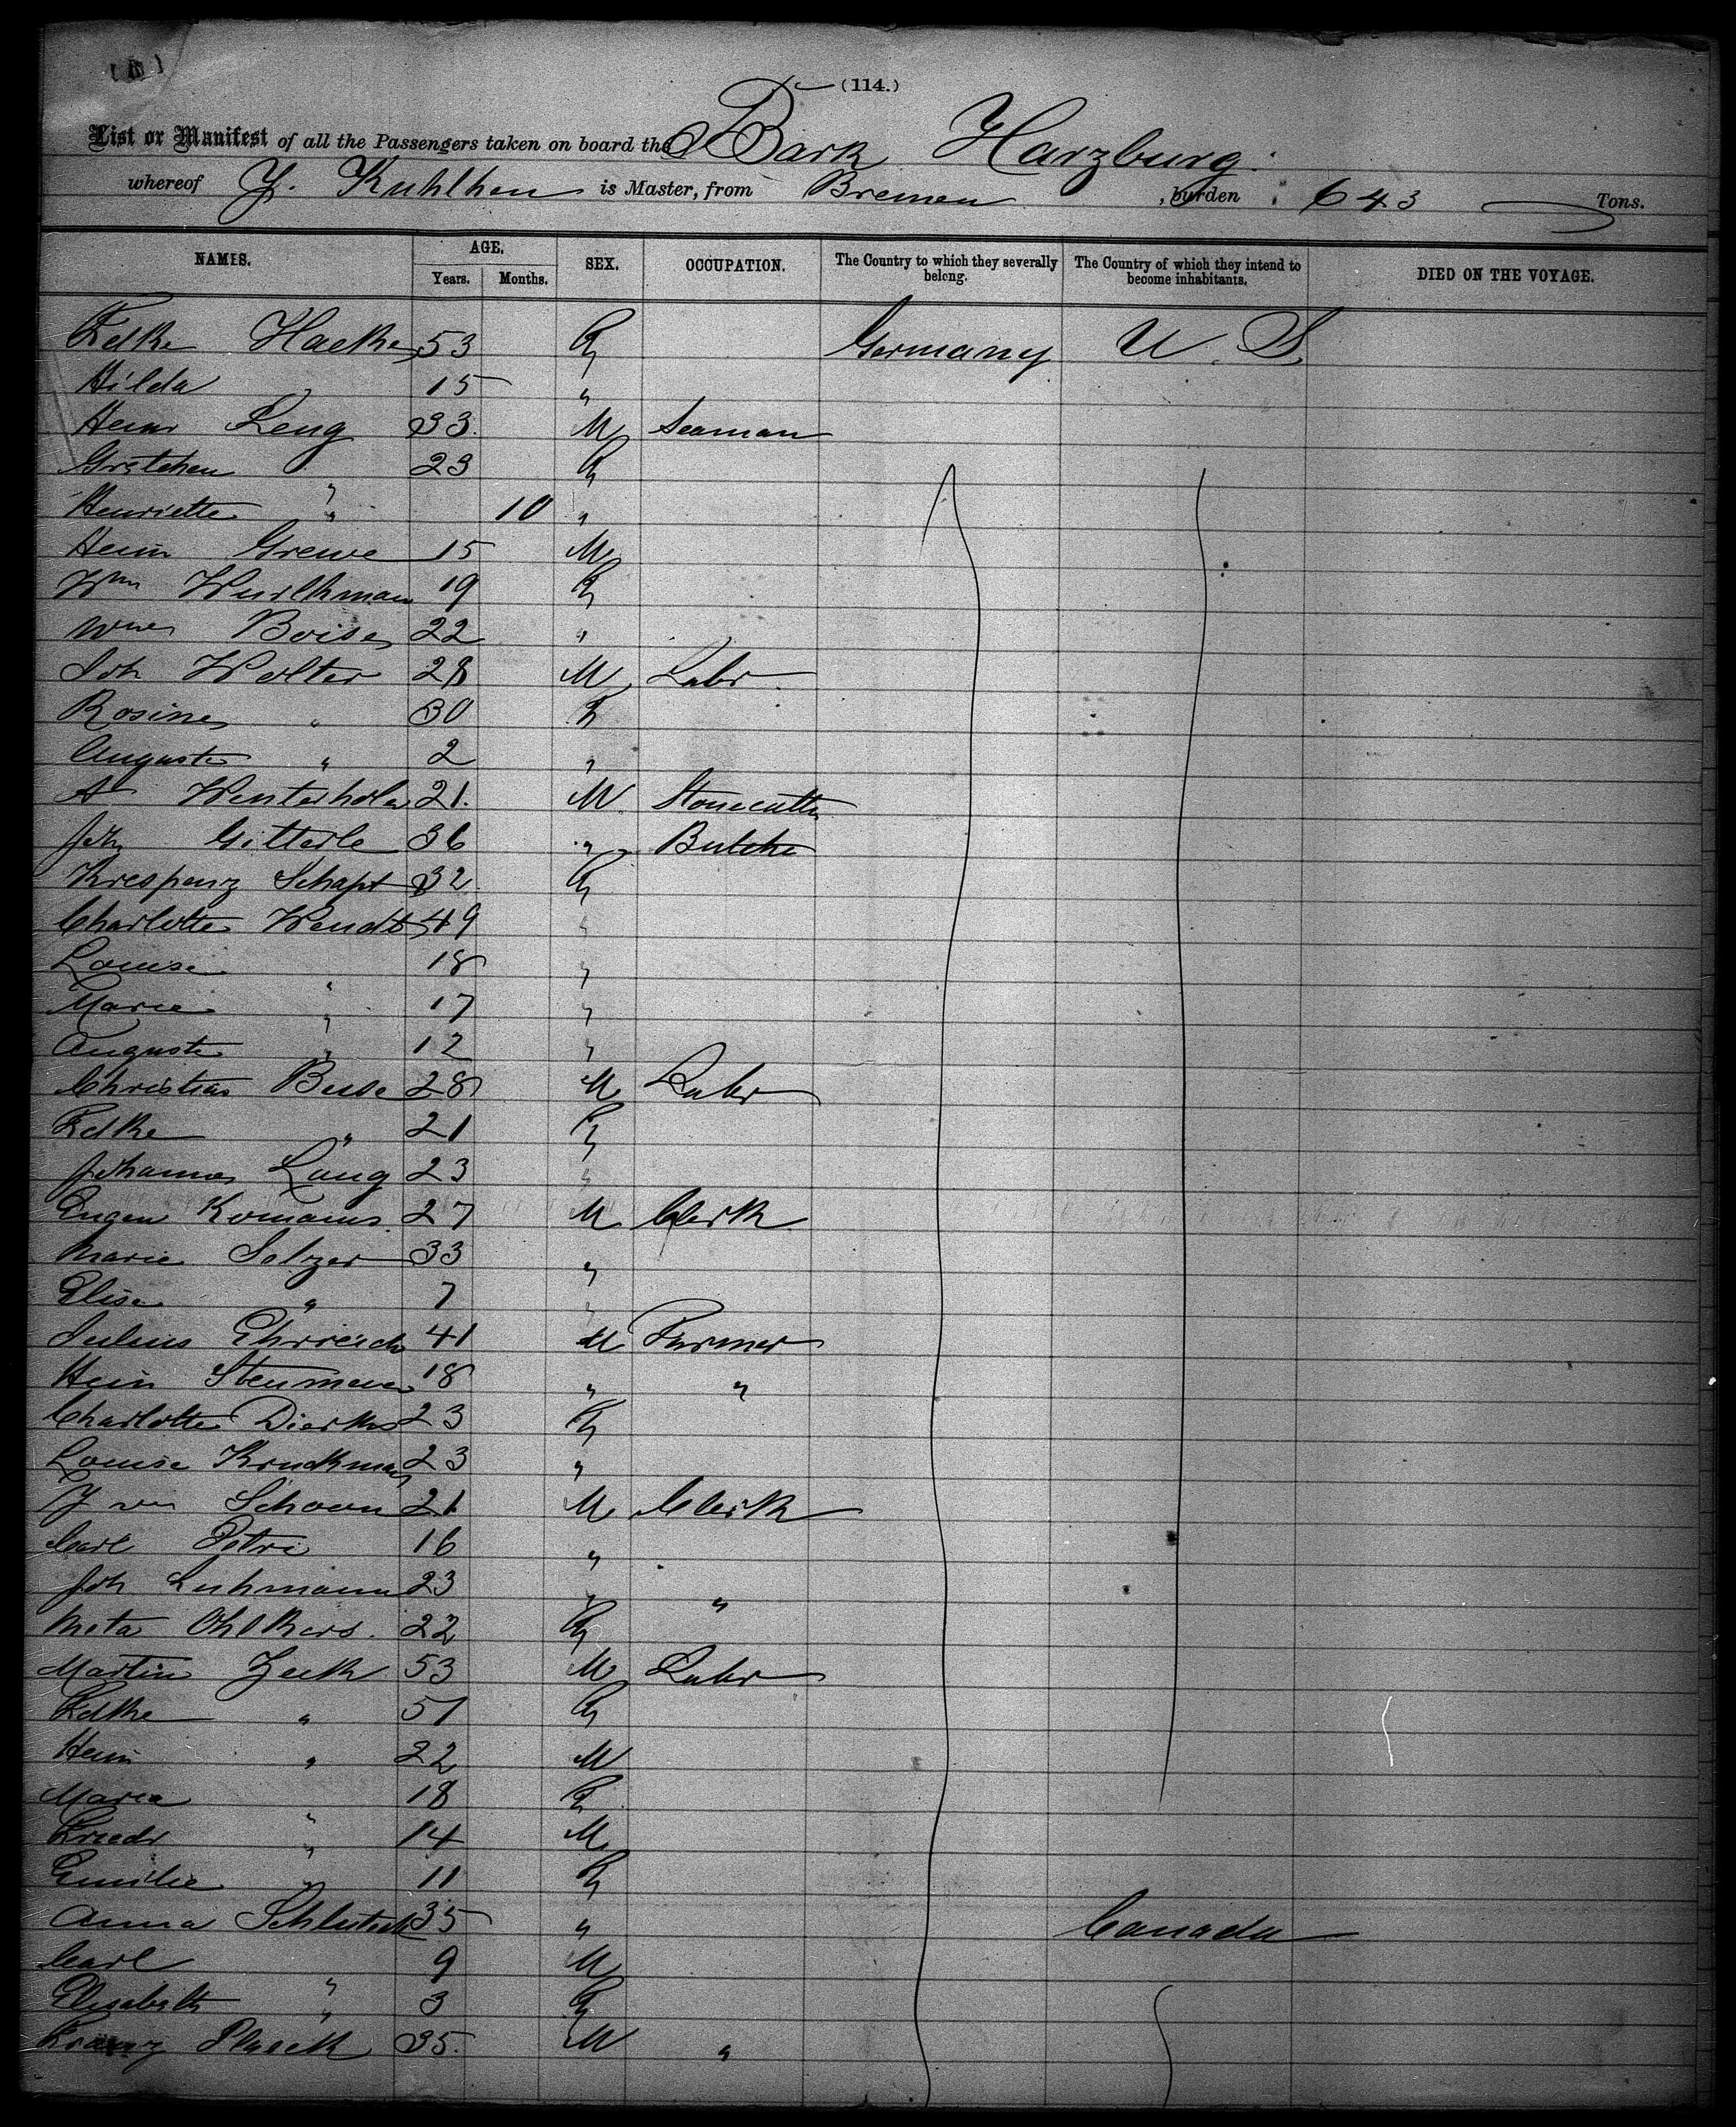 (114.)
List or Manifest of all the Passengers taken on board the Bark Harzburg
whereof Kuhlken is Master, from Bremen, burden 643 Tons.
NAMES. AGE. SEX. OCCUPATION. The Country to which they severally belong. The Country of which they intend to become inhabitants. DIED ON THE VOYAGE.
Years. Months.
Hacke 53 F Germany U. S
Hilda 15 "
Leng 33 M Seaman
Gretchen " 23 F
Henriette " 10 "
Grewe 15 M
Wm 19 F
Boise 22 "
Joh Wolter 28 M Labr
Rosine " 30 F
Auguste " 2 "
A 21. M Stonecutter
Joh Gitterle 36 " Butche
Schapt 32 F
Charlotte Wendt 49 "
Louise " 18 "
Marie " 17 "
Auguste " 12 "
Christian Buse 28 M Labr
" 21 F
Johannes Lang 23 "
Eugen Romanus 27 M Clerk
Marie Selzer 33 "
Elise " 7 "
Julius Ehrreich 41 M Farmer
18 " "
Charlotte Dierkes 23 F
Louise Kruckman 23 "
21 M Clerk
Carl Petri 16 "
Joh Luhmann 23 " "
Meta Ohlkers. 22 F
Martin Zeck 53 M Labr
" 51 F
" 22 M
Maria " 18 F
Friedr " 14 M
Emilie " 11 F
Anna 35 " Canada
Carl " 9 M
Elisabeth " 3 F
Franz Plasek 35. M "